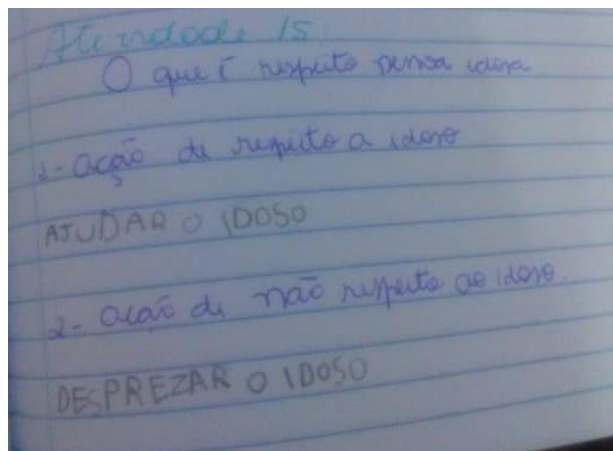 Atividade 15
O que é respeito pessoa idosa
1- Ação de respeito a idoso
AJUDAR O IDOSO
2- Ação de não respeito ao idoso.
DESPREZAR O IDOSO